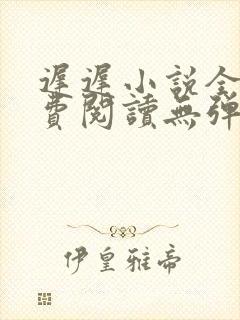 遲遲小說全
費閱讀無彈
伊皇雅帝